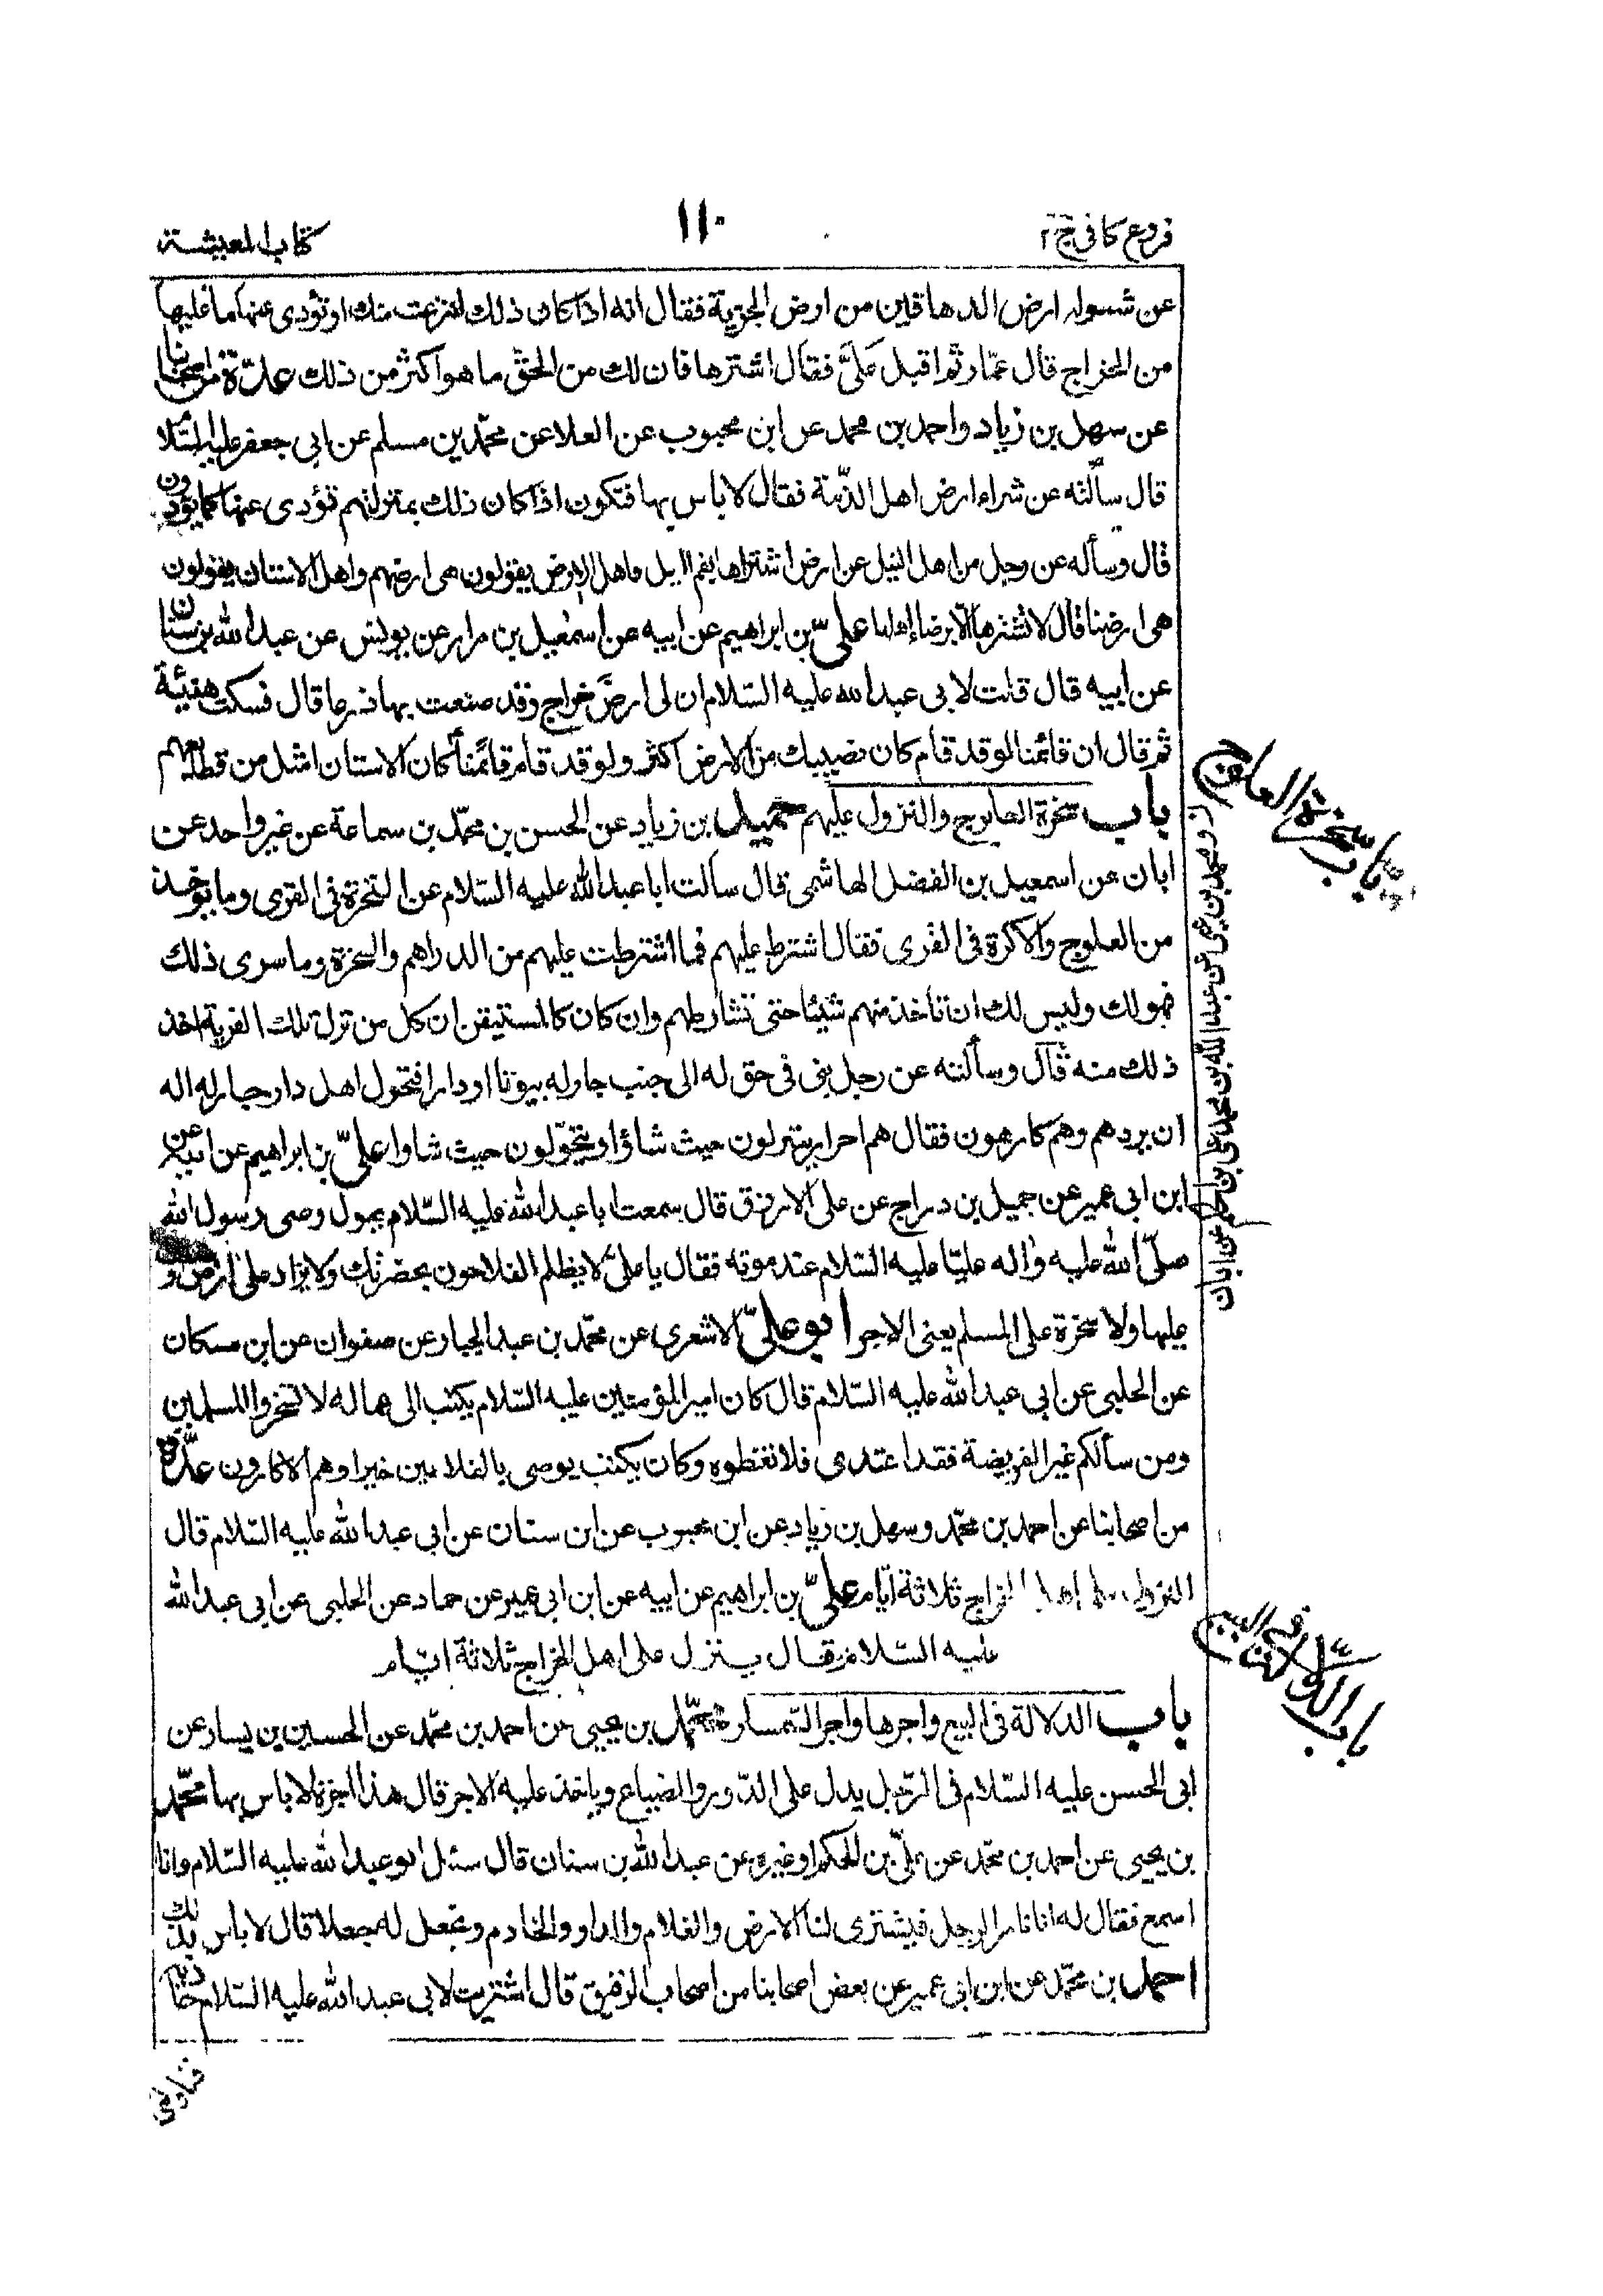 فروع كافى ج ٢
١١٠
كتاب المعيشة
عن شراء ارض الدهاقين من ارض الجزية فقال انه اذا كان ذلك انتزعت منك او تؤدى عنها ما عليها
من الخراج قال عمّار ثم اقبل علىَّ فقال اشترها فان لك من الحق ما هو اكثر من ذلك عدّة من اصحابنا
عن سهل بن زياد واحمد بن محمد عن ابن محبوب عن العلا عن محمّد بن مسلم عن ابى جعفر عليه السّلام
قال سألته عن شراء ارض اهل الذّمة فقال لا باس بها فتكون اذا كان ذلك بمنزلتهم تؤدى عنها كما يؤدون
قال وسأله عن رجل من اهل النيل عن ارض اشتراها بفم النيل فاهل الارض يقولون هى ارضهم واهل الاستان يقولون
هى ارضنا قال لا تشترها الّا برضا اهلها علىّ بن ابراهيم عن ابيه عن اسمعيل بن مرار عن يونس عن عبد الله بن سنان
عن ابيه قال قلت لابى عبد الله عليه السّلام ان لى ارض خراج وقد ضقت بها ذرعا قال فسكت هنيئة
ثم قال ان قائمنا لو قد قام كان نصيبك من الارض اكثر ولو قد قام قائمنا كان الاستان امثل من قطائعهم
باب سخرة العلوج والنزول عليهم حميد بن زياد عن الحسن بن محمّد بن سماعة عن غير واحد عن
ابان عن اسمعيل بن الفضل الهاشمى قال سألت ابا عبد الله عليه السّلام عن السّخرة فى القرى وما يؤخذ
من العلوج والاكرة فى القرى فقال اشترط عليهم فما اشترطت عليهم من الدراهم والسخرة وما سوى ذلك
فهو لك وليس لك ان تأخذ منهم شيئا حتى تشارطهم وان كان كالمستيقن ان كل من نزل تلك القرية اخذ
ذلك منه قال وسألته عن رجل بنى فى حق له الى جنب جار له بيوتا او دارا فتحول اهل دار جار له اله
ان يردهم وهم كارهون فقال هم احرار ينزلون حيث شاؤا ويتحوّلون حيث شاوا علىّ بن ابراهيم عن ابيه عن
ابن ابى عمير عن جميل بن دراج عن على الازرق قال سمعت ابا عبد الله عليه السّلام يقول وصى رسول الله
صلّى الله عليه واله عليّا عليه السّلام عند موته فقال يا علىّ لا يظلم الفلاحون بحضرتك ولا يزاد على ارض و
عليها ولا سخرة على المسلم يعنى الاجر ابو علىّ الاشعرى عن محمّد بن عبد الجبار عن صفوان عن ابن مسكان
عن الحلبى عن ابى عبد الله عليه السّلام قال كان امير المؤمنين عليه السّلام يكتب الى عماله لا تسخروا المسلمين
ومن سألكم غير الفريضة فقد اعتدى فلا تعطوه وكان يكتب يوصى بالفلاحين خيرا وهم الاكارون عدّة
من اصحابنا عن احمد بن محمّد وسهل بن زياد عن ابن محبوب عن ابن سنان عن ابى عبد الله عليه السّلام قال
النزول على اهل الخراج ثلاثة ايّام علىّ بن ابراهيم عن ابيه عن ابن ابى عمير عن حماد عن الحلبى عن ابى عبد الله
عليه السّلام قال ينزل على اهل الخراج ثلاثة ايّام
باب الدلالة فى البيع واجرها واجر السّمسار محمّد بن يحيى عن احمد بن محمّد عن الحسين بن يسار عن
ابى الحسن عليه السّلام فى الرّجل يدل على الدّور والضياع وياخذ عليه الاجر قال هذا اجرة لا باس بها محمّد
بن يحيى عن احمد بن محمّد عن علىّ بن الحكم او غيره عن عبد الله بن سنان قال سئل ابو عبد الله عليه السّلام وانا
اسمع فقال له انا نامر الرجل فيشترى لنا الارض والغلام والدار والخادم ونجعل له جعلا قال لا بأس بذلك
احمد بن محمّد عن ابن ابى عمير عن بعض اصحابنا من اصحاب الرقيق قال اشتريت لابى عبد الله عليه السّلام جارية
فناولنى
باب سخرة العلوج
عن عبد الله بن
عن ابان
باب الدّلالة فى البيع